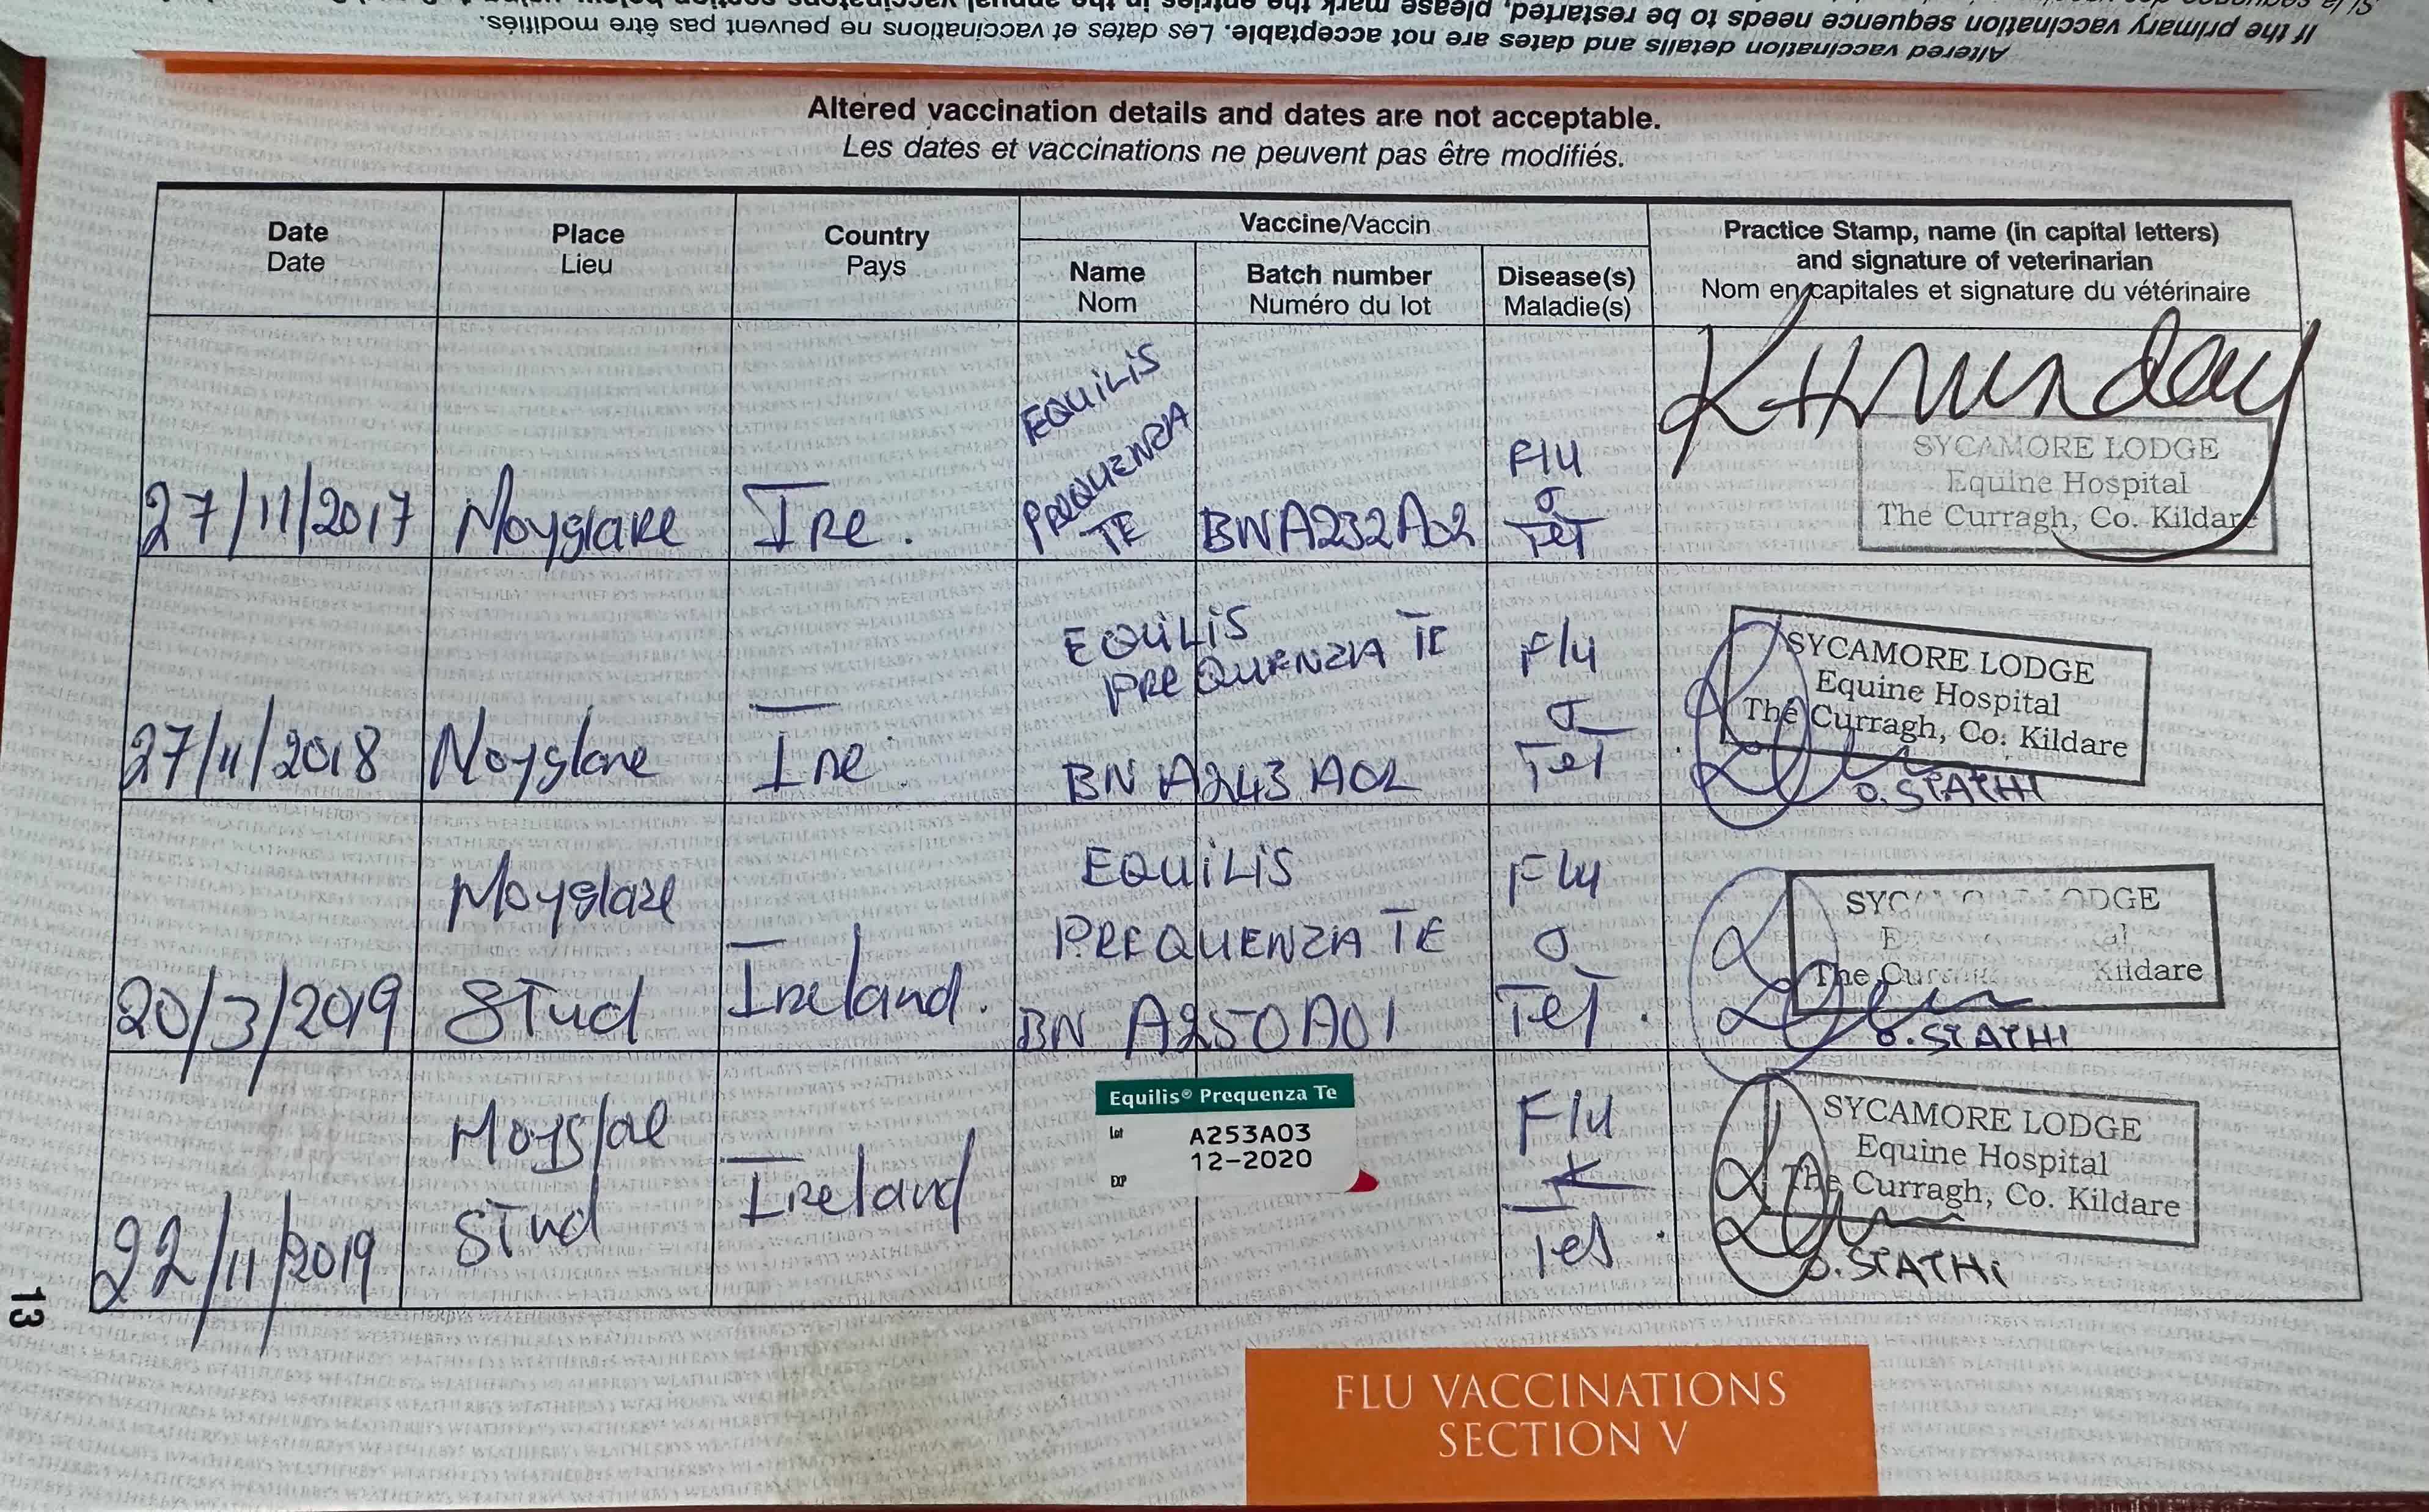 If the primary vaccination sequence needs to be restarted, please mark the entries in the annual vaccinations section below using
Altered vaccination details and dates are not acceptable. Les dates et vaccinations ne peuvent pas être modifiés.
Altered vaccination details and dates are not acceptable.
Les dates et vaccinations ne peuvent pas être modifiés.
Date
Date
Place
Lieu
Country
Pays
Vaccine/Vaccin
Name
Nom
Batch number
Numéro du lot
Disease(s)
Maladie(s)
Practice Stamp, name (in capital letters)
and signature of veterinarian
Nom en capitales et signature du vétérinaire
27/11/2017
Moyglare
Ire.
EQUILIS
PREQUENZA
TE
BN A232A02
Flu
Tet
SYCAMORE LODGE
Equine Hospital
The Curragh, Co. Kildare
27/11/2018
Moyglare
Ire.
EQUILIS
PREQUENZA TE
BN A243A02
Flu
Tet
SYCAMORE LODGE
Equine Hospital
The Curragh, Co. Kildare
O. STATHI
20/3/2019
Moyglare
Stud
Ireland.
EQUILIS
PREQUENZA TE
BN A250A01
Flu
Tet.
SYC ODGE
E al
The Cur Kildare
O. STATHI
22/11/2019
Moyglare
Stud
Ireland
Equilis® Prequenza Te
Lot A253A03
12-2020
EXP
Flu
Tet.
SYCAMORE LODGE
Equine Hospital
The Curragh, Co. Kildare
O. STATHI
13
FLU VACCINATIONS
SECTION V